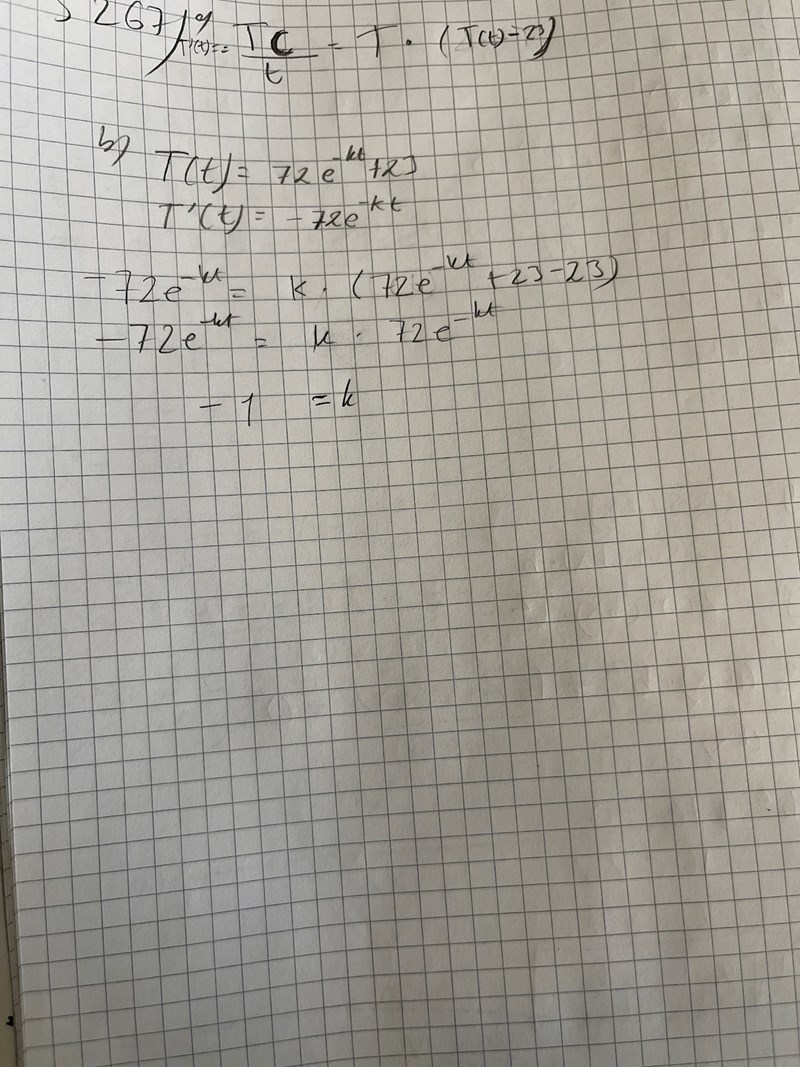 267) a) T'(t) = TC/t = T · (T(t) - 23)
b) T(t) = 72e^-kt + 23
T'(t) = -72e^-kt
-72e^-kt = k · (72e^-kt + 23 - 23)
-72e^-kt = k · 72e^-kt
-1 = k